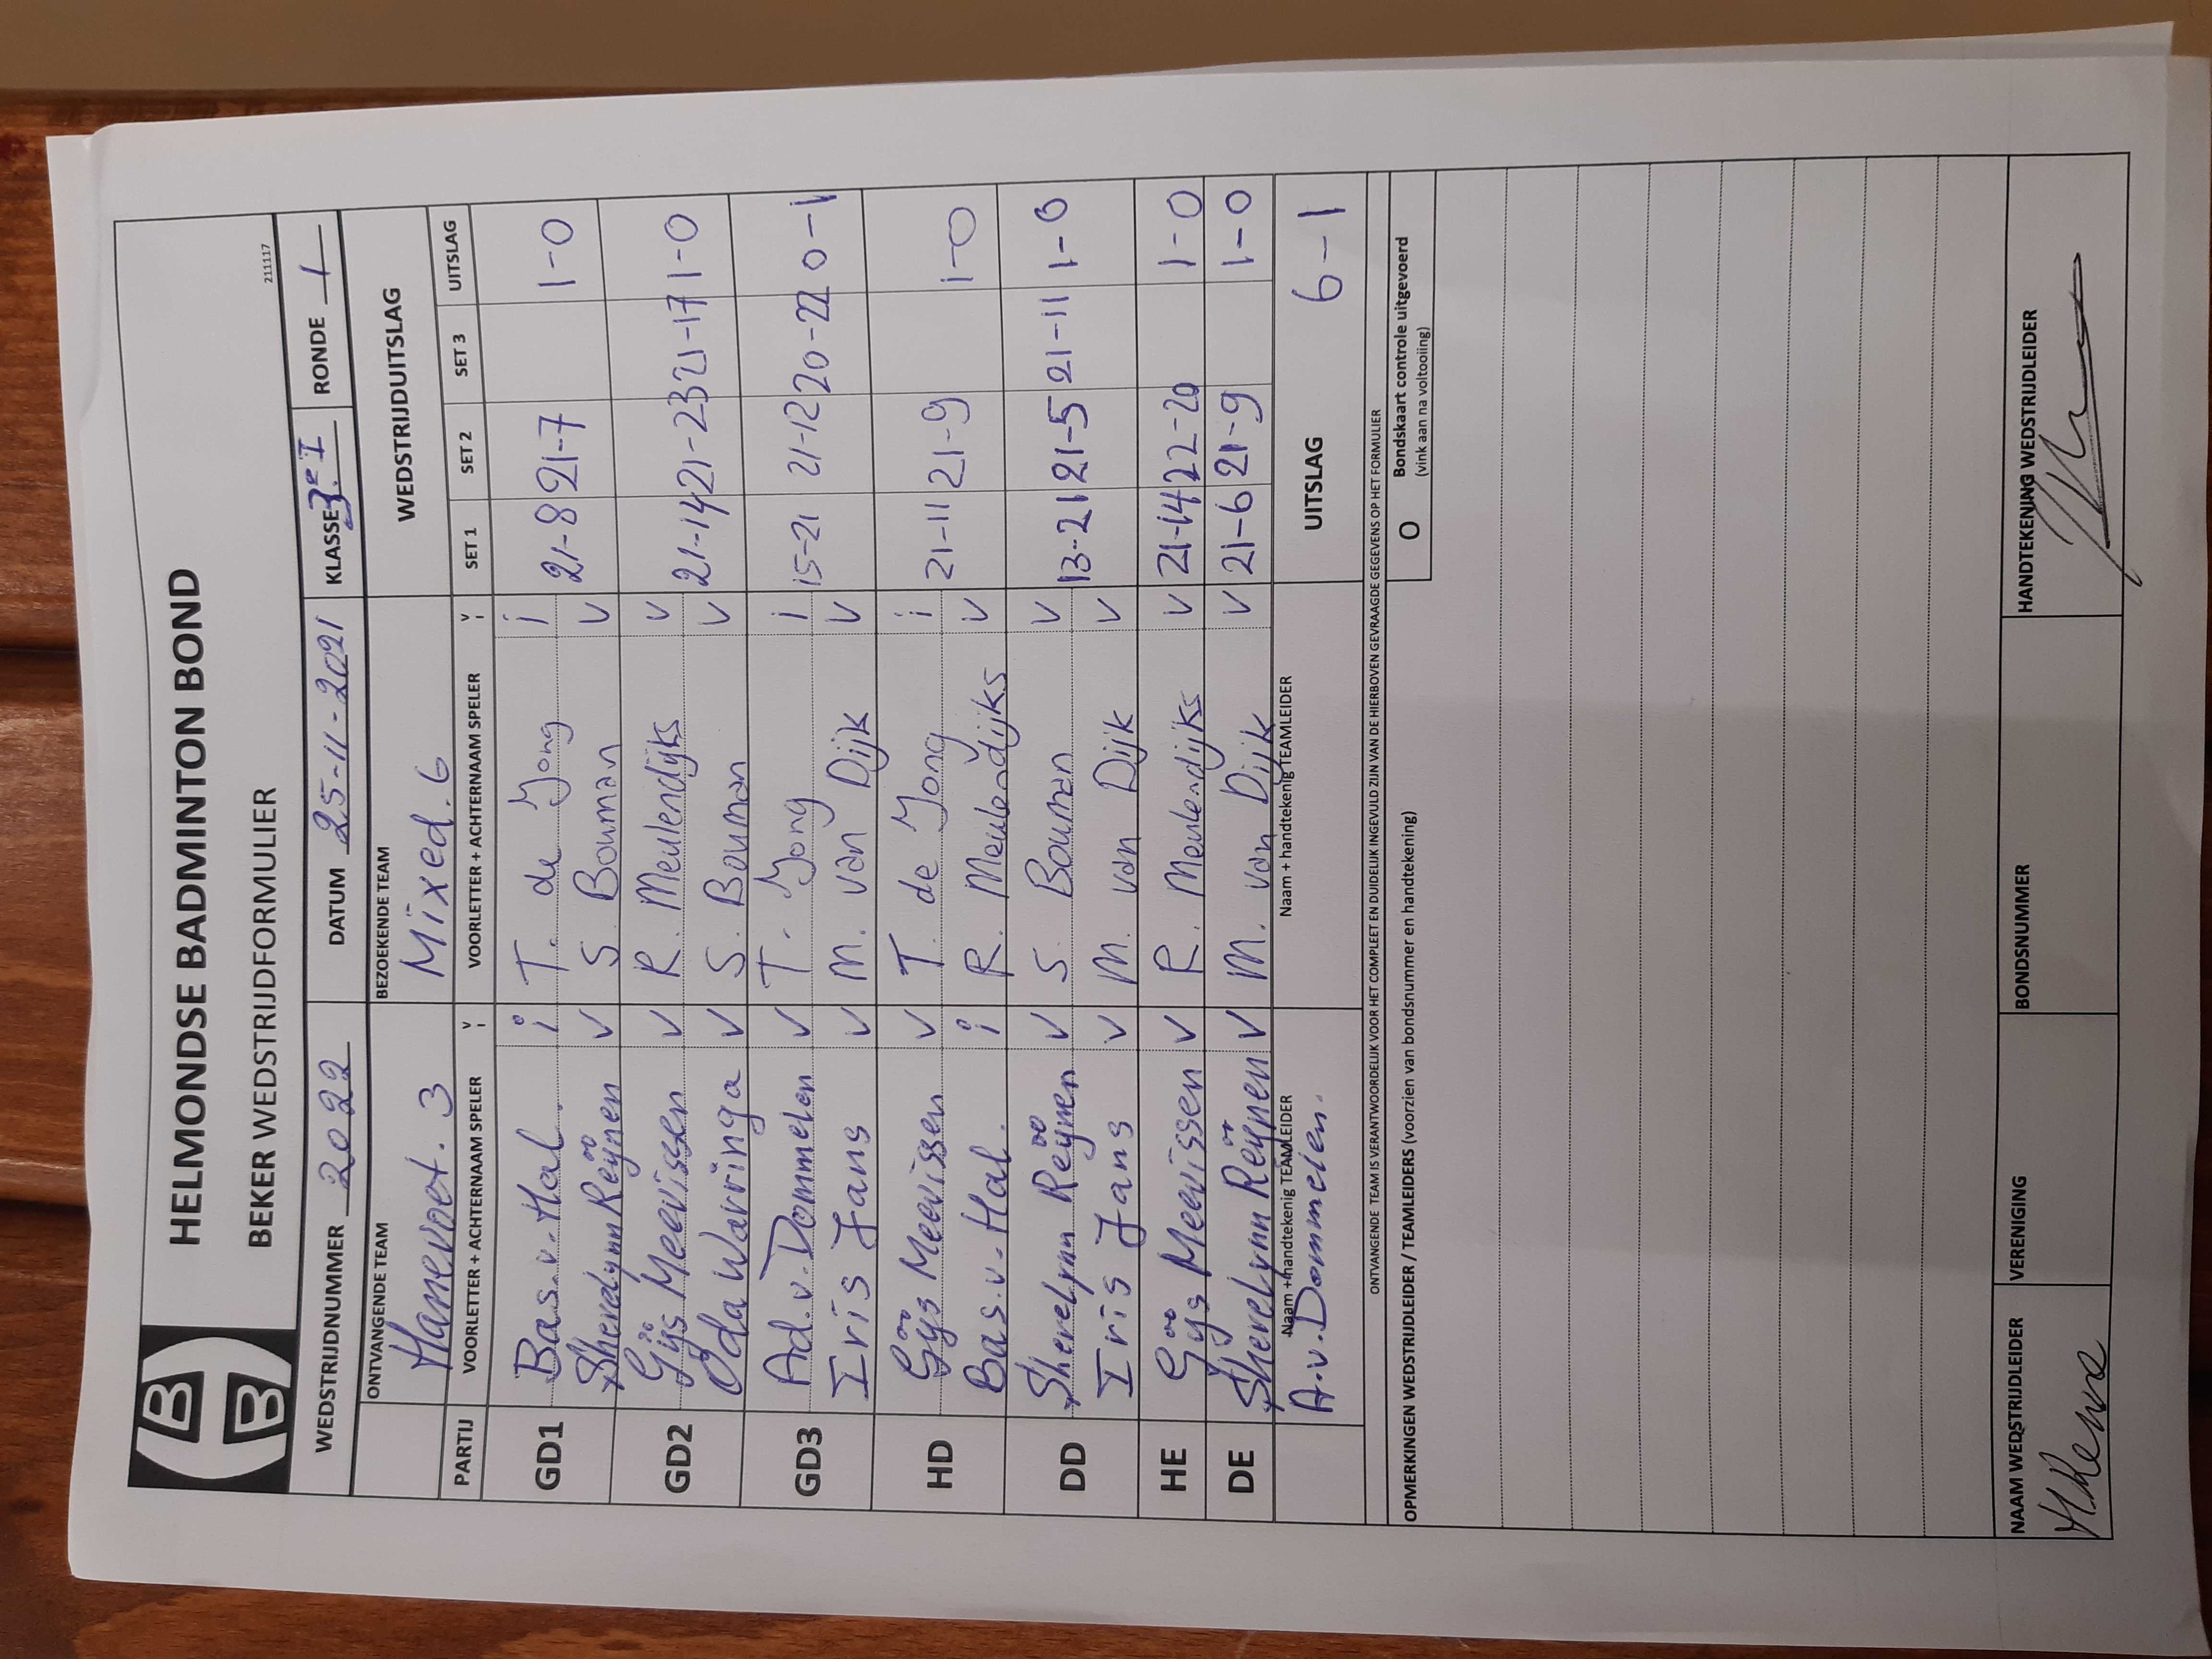 HELMONDSE BADMINTON BOND
BEKER WEDSTRIJDFORMULIER
211117
WEDSTRIJDNUMMER 2022 DATUM 25-11-2021 KLASSE 3e I RONDE 1
ONTVANGENDE TEAM BEZOEKENDE TEAM WEDSTRIJDUITSLAG
Hanevoet. 3 Mixed. 6
PARTIJ VOORLETTER + ACHTERNAAM SPELER V VOORLETTER + ACHTERNAAM SPELER V SET 1 SET 2 SET 3 UITSLAG
GD1 Bas. v. Hal. i T. de Jong i 21-8 21-7 1-0
Sheralynn Reijnen V S. Bouman V
GD2 Gijs Meevissen V R. Meulendijks V 21-14 21-23 21-17 1-0
Oda Warringa V S. Bouman V
GD3 Ad. v. Dommelen V T. Jong i 15-21 21-12 20-22 0-1
Iris Jans V M. van Dijk V
HD Gijs Meevissen V T. de Jong i 21-11 21-9 1-0
Bas. v. Hal. i R. Meulendijks V
DD Sherelynn Reijnen V S. Bouman V 13-21 21-5 21-11 1-0
Iris Jans V M. van Dijk V
HE Gijs Meevissen V R. Meulendijks V 21-14 22-20 1-0
DE Sherelynn Reijnen V M. van Dijk V 21-6 21-9 1-0
Naam + handtekenig TEAMLEIDER Naam + handtekenig TEAMLEIDER UITSLAG 6-1
A. v. Dommelen.
ONTVANGENDE TEAM IS VERANTWOORDELIJK VOOR HET COMPLEET EN DUIDELIJK INGEVULD ZIJN VAN DE HIERBOVEN GEVRAAGDE GEGEVENS OP HET FORMULIER
OPMERKINGEN WEDSTRIJDLEIDER / TEAMLEIDERS (voorzien van bondsnummer en handtekening)
O Bondskaart controle uitgevoerd
(vink aan na voltooiing)
NAAM WEDSTRIJDLEIDER VERENIGING BONDSNUMMER HANDTEKENING WEDSTRIJDLEIDER